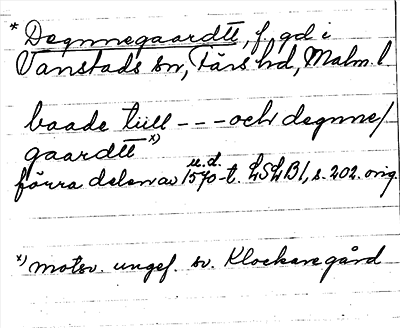 * Degnnegaardtt, f. gd i
Vanstads sn, Färs hd, Malm. l
baade tiill --- och degnne/
gaardtt x)
förra delen av u.d. 1570-t. LSLB1, s. 202. orig.
x) motsv. ungef. sv. Klockaregård